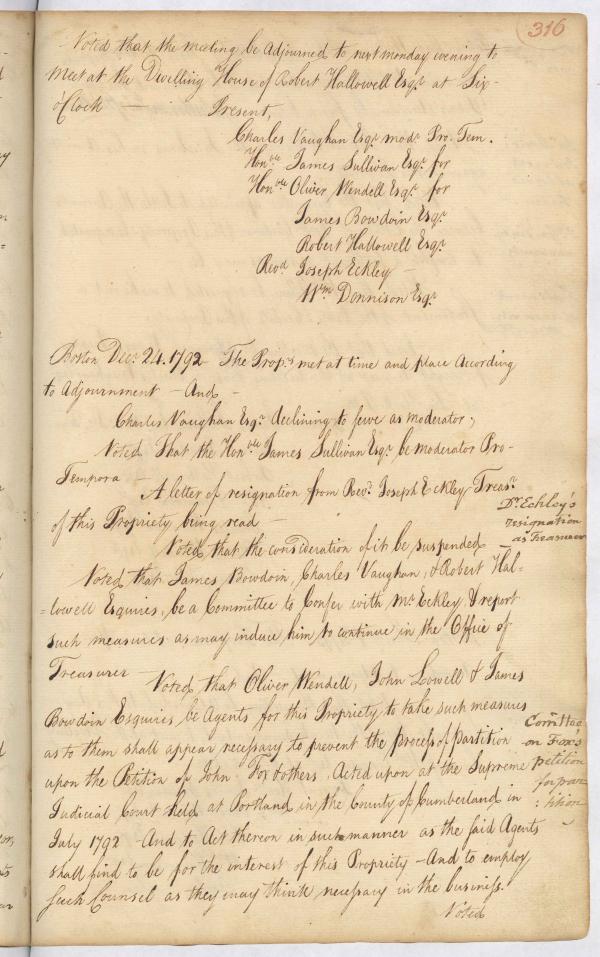 316
Voted that the meeting be Adjourned to next monday evening to
meet at the Dwelling House of Robert Hallowell Esqr. at Six
o'Clock — Present,
Charles Vaughan Esqr. modr. Pro. Tem.
Honble James Sullivan Esqr. for
Honble Oliver Wendell Esqr. for
James Bowdoin Esqr
Robert Hallowell Esqr.
Revd Joseph Eckley —
Wm Dennison Esqr.
Boston Decr. 24. 1792 — The Props. met at time and place According
to Adjournment — And —
Charles Vaughan Esqr. declining to serve as moderator;
Voted That the Honble James Sullivan Esqr. be moderator Pro-
Tempora —
A letter of resignation from Revd. Joseph Eckley Treasr.
of this Propriety being read —
Dr. Eckley's
resignation
as Treasurer
Voted that the consideration of it be suspended
Voted that James Bowdoin, Charles Vaughan, & Robert Hal=
=lowell Esquires, be a Committee to Confer with Mr. Eckley & report
such measures as may induce him to continue in the Office of
Treasurer —
Voted that Oliver Wendell, John Lowell & James
Bowdoin Esquires be Agents for this Propriety to take such measures
as to them shall appear necessary to prevent the process of partition
upon the Petition of John Fox & others, Acted upon at the Supreme
Judicial Court held at Portland in the County of Cumberland in
July 1792 — And to Act thereon in such manner as the said Agents
shall find to be for the interest of this Propriety — And to employ
such Counsel as they may think necessary in the business.
Comttee
on Fox's
petition
for par
:tition
Voted